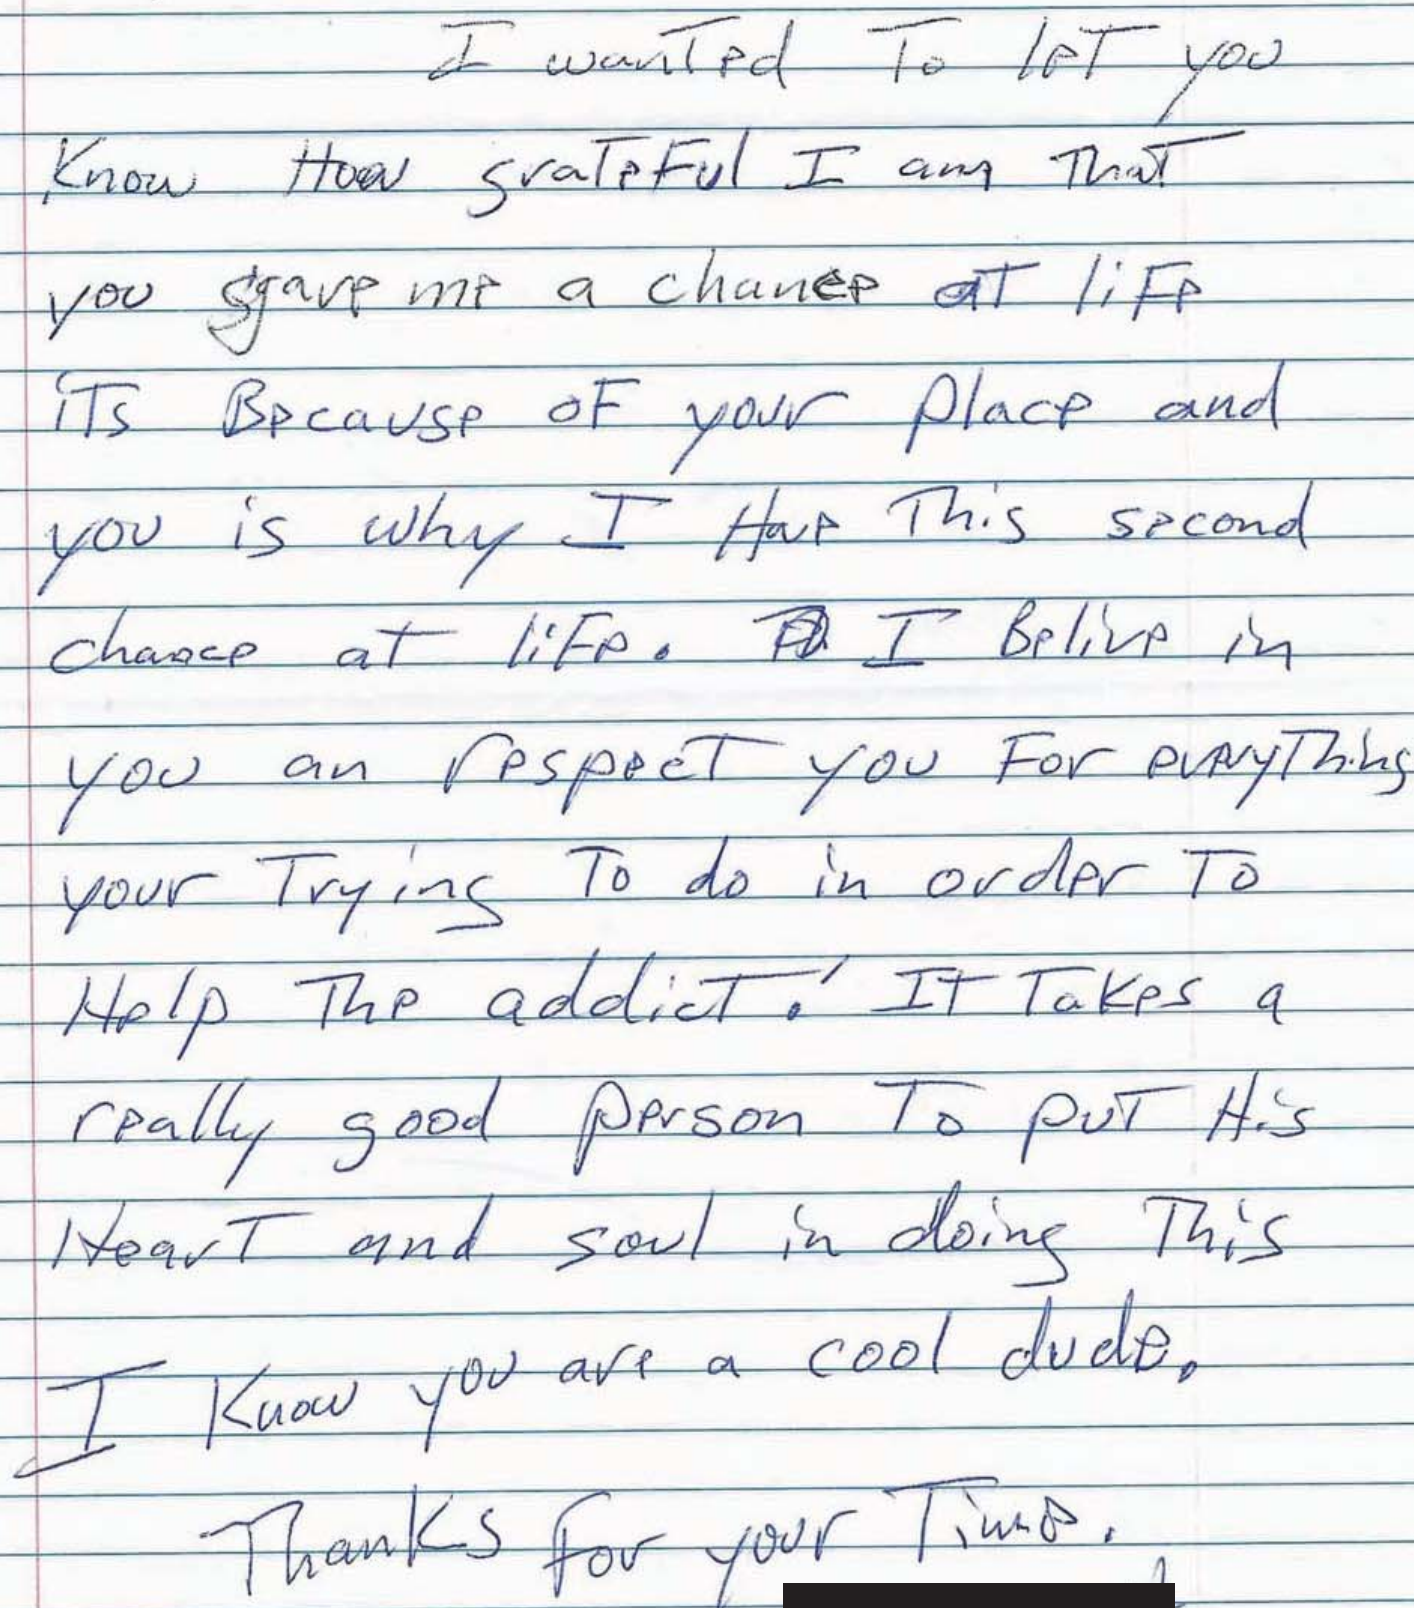 I wanted To let you
Know How grateful I am That
you gave me a chance at life
iTs Because of your place and
you is why I Have This second
chance at life. I Belive in
you an respect you For everyThing
your Trying To do in order To
Help The addict! It Takes a
really good person To put His
Heart and soul in doing This
I Know you are a cool dude.
Thanks for your Time.